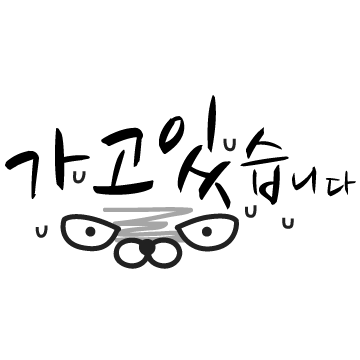 가고있습니다